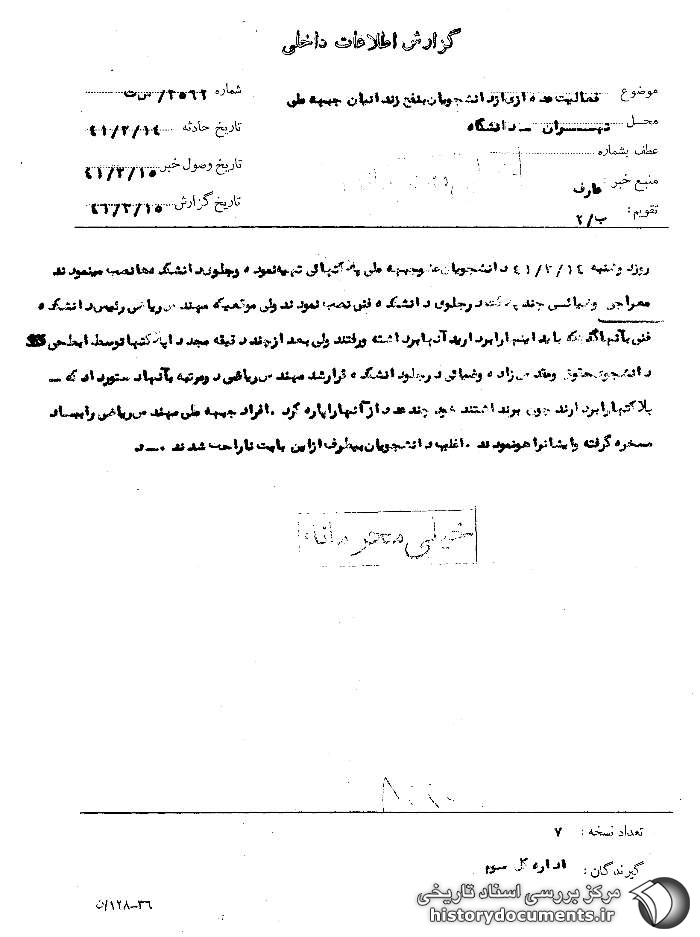 گزارش اطلاعات داخلی
موضوع فعالیت عده ازی از دانشجویان بنفع زندانیان جبهه ملی
شماره ۲۵۶۲/س ت
محل تهـــران ــ دانشگاه
تاریخ حادثه ۴۱/۲/۱۴
عطف بشماره
تاریخ وصول خبر ۴۱/۲/۱۵
منبع خبر عارف
تاریخ گزارش ۴۱/۲/۱۵
تقویم: ب/۲
روز دوشنبه ۴۱/۲/۱۴ دانشجویان عضو جبهه ملی پلاکتهائی تهیه نموده وجلوی دانشکده ها نصب مینمودند
معراجی وضیائی چند پلاکت درجلوی دانشکده فنی نصب نمودند ولی موقعیکه مهندس ریاضی رئیس دانشکده
فنی بآنها گفت که باید اینها را بردارید آنها برداشته ورفتند ولی بعد از چند دقیقه مجدد اپلاکتها توسط ابطحی
دانشجوی حقوق ومقدس زاده وضیائی درجلو دانشکده قرارشد مهندس ریاضی دومرتبه بآنها دستور داد که ــ
پلاکتها را بردارند چون برنداشتند خود چند عدد از آنها را پاره کرد . افراد جبهه ملی مهندس ریاضی را بباد
مسخره گرفته وایشانرا هو نمودند . اغلب دانشجویان بیطرف از این بابت ناراحت شدند . ــ د
خیلی محرمانه
تعداد نسخه : ۷
گیرندگان : اداره کل سوم
۳۶-۱۲۸/ن
مرکز بررسی اسناد تاریخی
historydocuments.ir